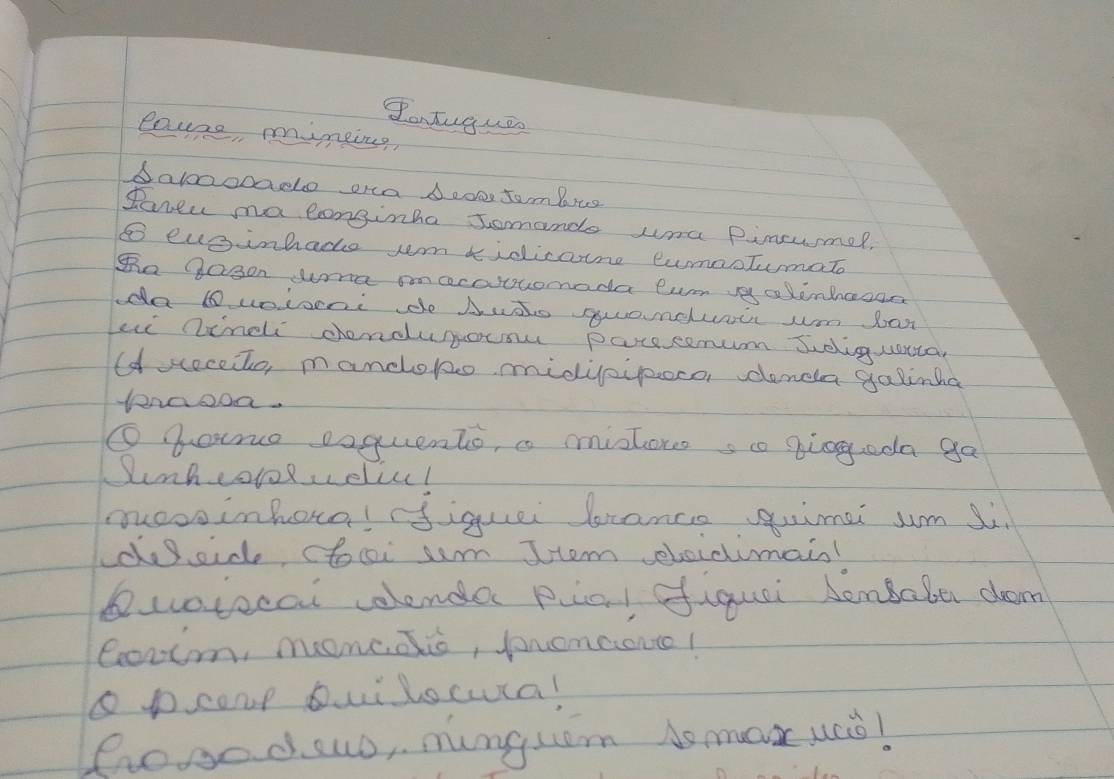 Português
Causo mineiro,
Sabassado era sessetembro
Taveu na conzinha tomando uma pincumel
E cuzinhado um kidicarne cumastumate
Pra fazer uma macarronada cum galinhassa
da Quaiscai de susto quanduvir um bar
ui vindi dendufornu parecenum tidiguerra,
A receita, mandopo midipipoca denda galinha
prassa.
O forno esquentô, o mistoro e o fiofoda ga
linhespludiu!
nuossinhora! Fiquei branco quinei um li.
dileide. Foi um trem doidimais!
Quaiscai denda pia! Fiquei sensabe dom
covim, noncotiô, proncovo!
O pcevê quilocura!
Grazadeus, ninguém semaxucô!